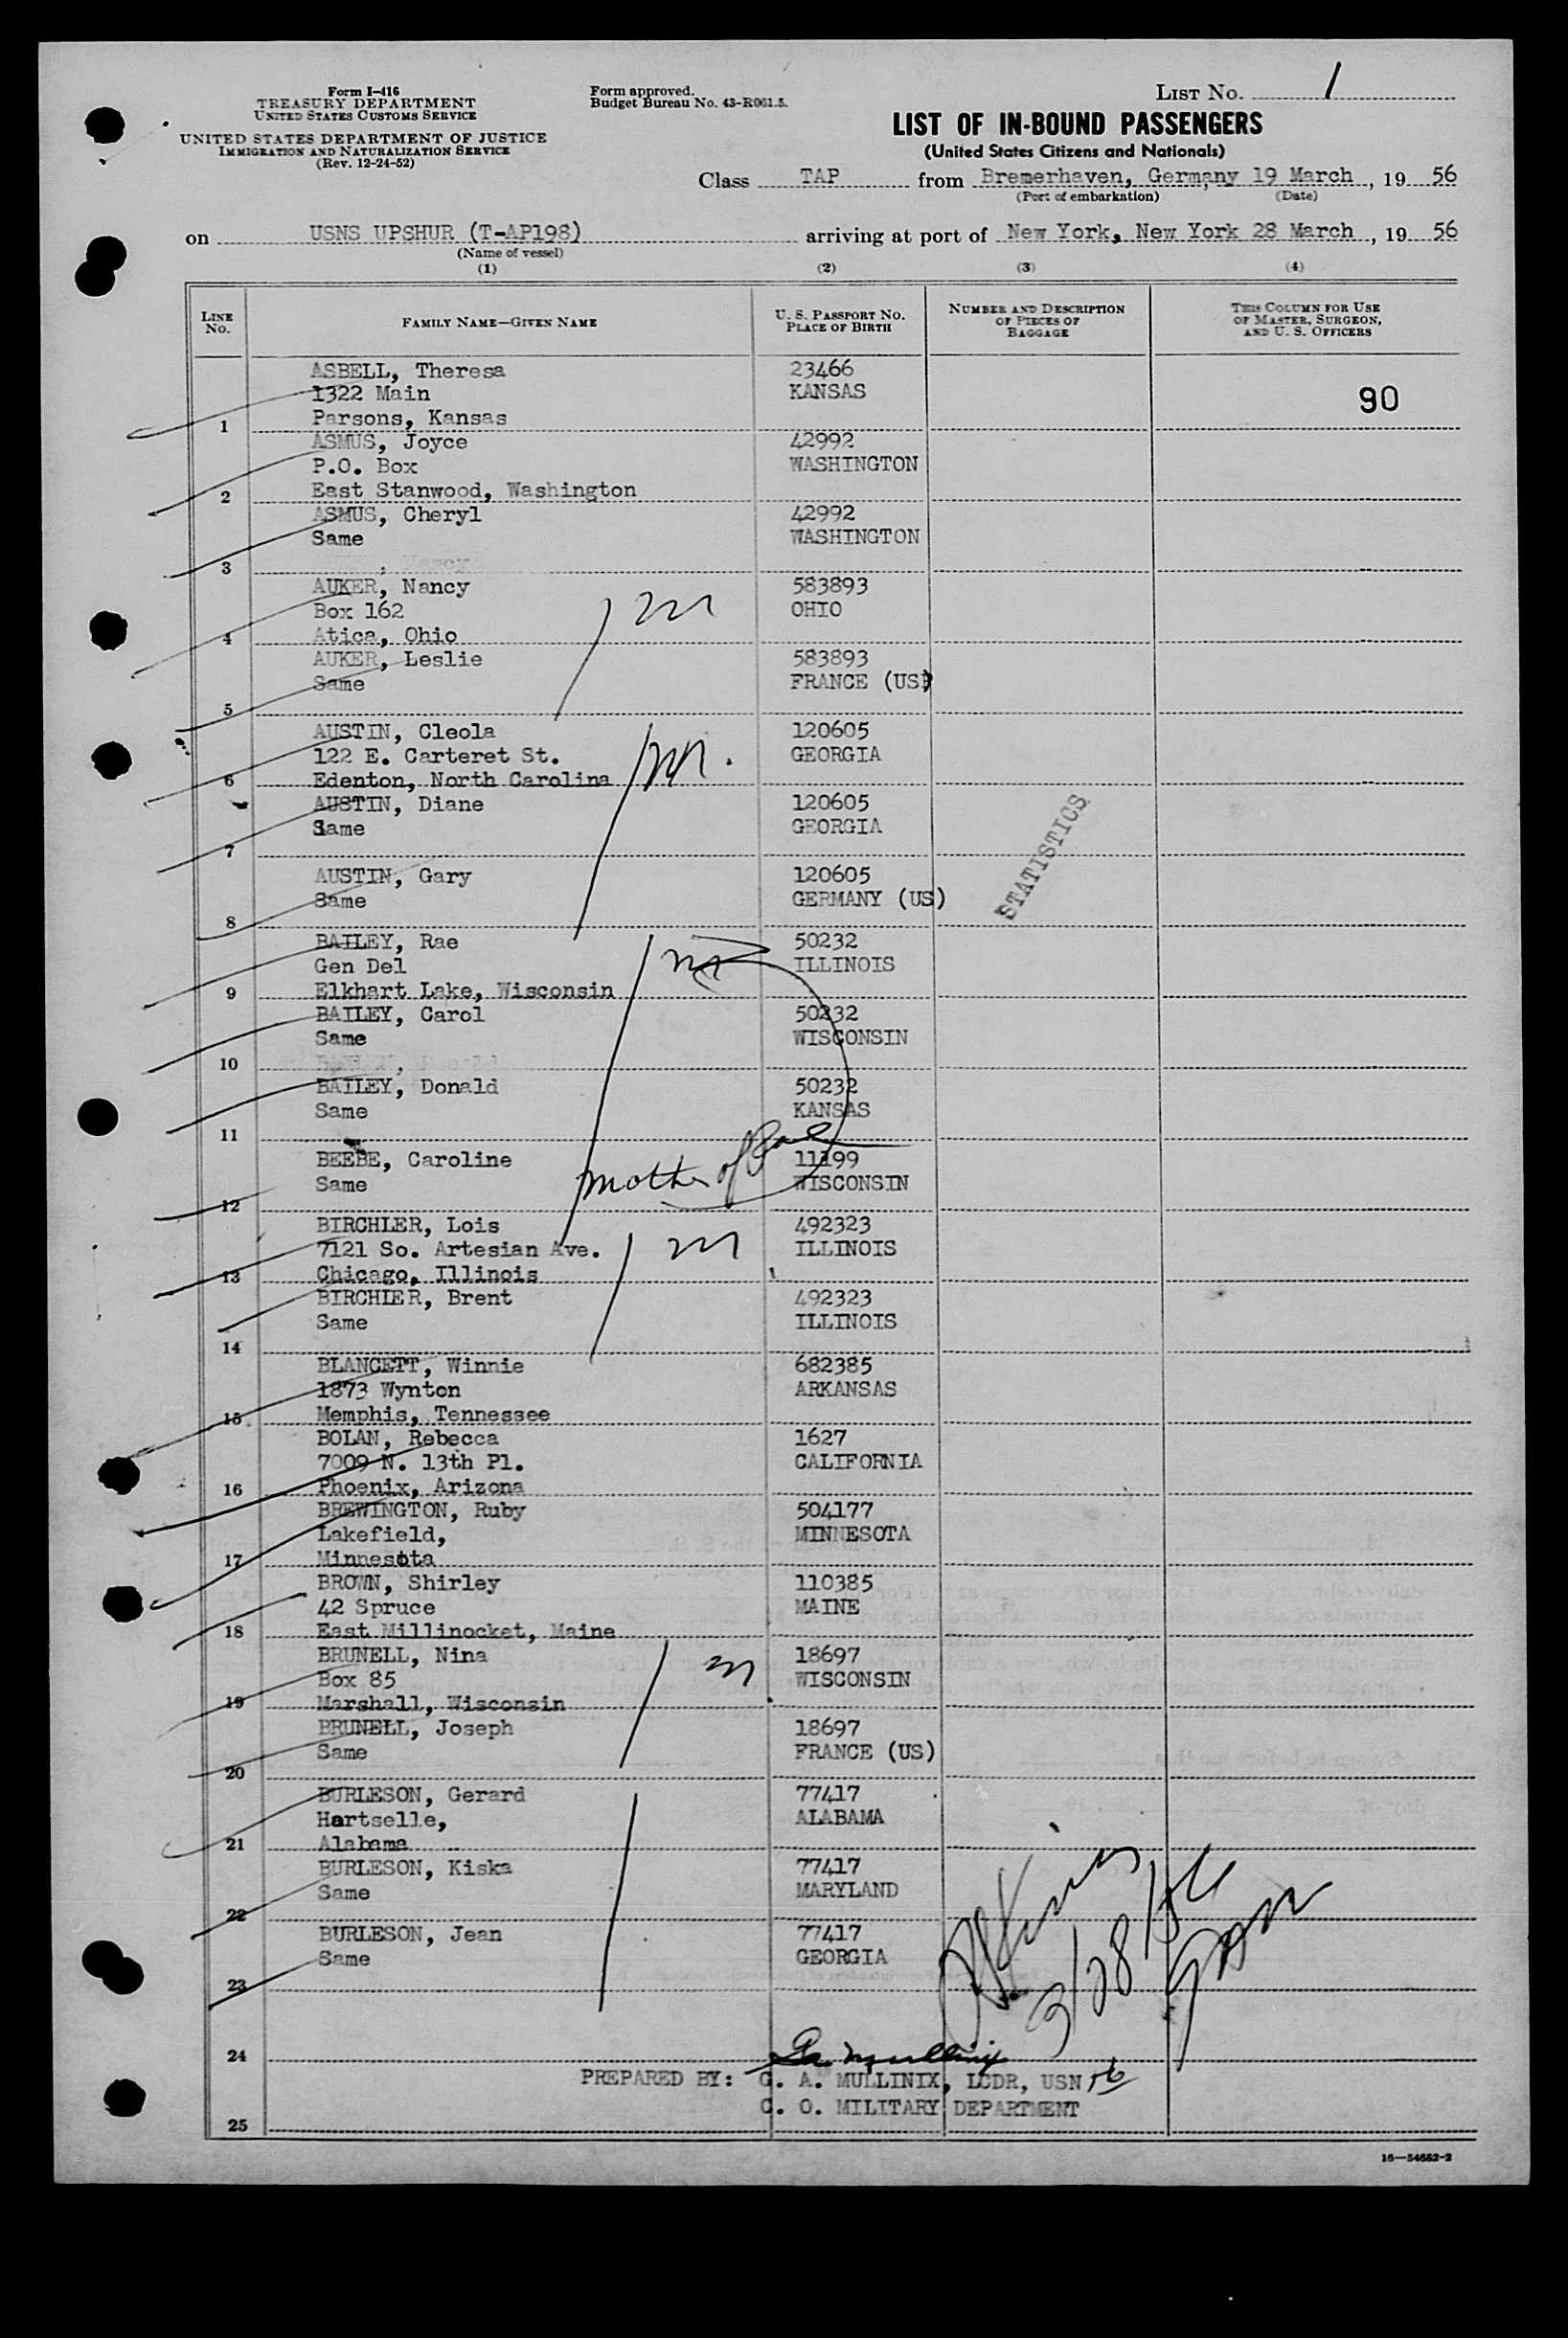 Form I-416
TREASURY DEPARTMENT
UNITED STATES CUSTOMS SERVICE
UNITED STATES DEPARTMENT OF JUSTICE
IMMIGRATION AND NATURALIZATION SERVICE
(Rev. 12-24-52)
Form approved.
Budget Bureau No. 43-R061.5.
LIST No. 1
LIST OF IN-BOUND PASSENGERS
(United States Citizens and Nationals)
Class TAP from Bremerhaven, Germany 19 March, 19 56
(Port of embarkation) (Date)
on USNS UPSHUR (T-AP198) arriving at port of New York, New York 28 March, 19 56
(Name of vessel)
(1) (2) (3) (4)
LINE No. FAMILY NAME—GIVEN NAME U. S. PASSPORT NO. PLACE OF BIRTH NUMBER AND DESCRIPTION OF PIECES OF BAGGAGE THIS COLUMN FOR USE OF MASTER, SURGEON, AND U. S. OFFICERS
ASBELL, Theresa 23466
1322 Main KANSAS 90
1 Parsons, Kansas
ASMUS, Joyce 42992
P.O. Box WASHINGTON
2 East Stanwood, Washington
ASMUS, Cheryl 42992
Same WASHINGTON
3
AUKER, Nancy 583893
Box 162 OHIO m
4 Atica, Ohio
AUKER, Leslie 583893
Same FRANCE (US)
5
AUSTIN, Cleola 120605
122 E. Carteret St. GEORGIA
6 Edenton, North Carolina m.
AUSTIN, Diane 120605
Same GEORGIA
7
STATISTICS
AUSTIN, Gary 120605
Same GERMANY (US)
8
BAILEY, Rae 50232
Gen Del ILLINOIS m
9 Elkhart Lake, Wisconsin
BAILEY, Carol 50232
Same WISCONSIN
10
BAILEY, Donald 50232
Same KANSAS
11
BEEBE, Caroline 11199
Same mother of Rae WISCONSIN
12
BIRCHLER, Lois 492323
7121 So. Artesian Ave. m ILLINOIS
13 Chicago, Illinois
BIRCHLER, Brent 492323
Same ILLINOIS
14
BLANCETT, Winnie 682385
1873 Wynton ARKANSAS
15 Memphis, Tennessee
BOLAN, Rebecca 1627
7009 N. 13th Pl. CALIFORNIA
16 Phoenix, Arizona
BREWINGTON, Ruby 504177
Lakefield, MINNESOTA
17 Minnesota
BROWN, Shirley 110385
42 Spruce MAINE
18 East Millinocket, Maine
BRUNELL, Nina 18697
Box 85 m WISCONSIN
19 Marshall, Wisconsin
BRUNELL, Joseph 18697
Same FRANCE (US)
20
BURLESON, Gerard 77417
Hartselle, ALABAMA
21 Alabama
BURLESON, Kiska 77417
Same MARYLAND
22
BURLESON, Jean 77417
Same GEORGIA
23
3/28/56
24
PREPARED BY: G. A. MULLINIX, LCDR, USN
C. O. MILITARY DEPARTMENT
25
16—54652-2